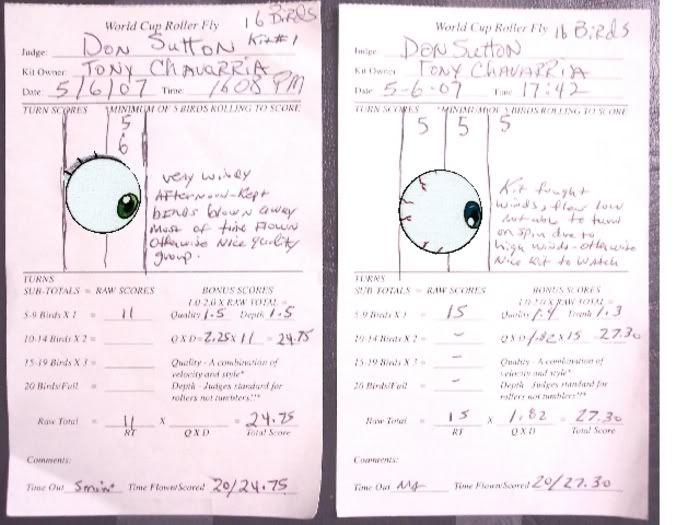 World Cup Roller Fly 16 Birds
Kit #1
Judge: Don Sutton
Kit Owner: Tony Chavarria
Date: 5/6/07 Time: 1608 PM
TURN SCORES *MINIMUM OF 5 BIRDS ROLLING TO SCORE
5
6
very windy
Afternoon-Kept
birds blown away
most of time flown
Otherwise Nice quality
group.
TURNS
SUB-TOTALS = RAW SCORES BONUS SCORES
1.0-2.0 X RAW TOTAL =
5-9 Birds X 1 = 11 Quality 1.5 Depth 1.5
10-14 Birds X 2 = Q X D = 2.25 X 11 = 24.75
15-19 Birds X 3 = Quality - A combination of
velocity and style*
20 Birds/Full = Depth - Judges standard for
rollers not tumblers!**
Raw Total = 11 X = 24.75
RT Q X D Total Score
Comments:
Time Out 5min Time Flown/Scored 20/24.75
World Cup Roller Fly 16 Birds
Judge: Don Sutton
Kit Owner: Tony Chavarria
Date: 5-6-07 Time: 17:42
TURN SCORES *MINIMUM OF 5 BIRDS ROLLING TO SCORE
5 5 5
Kit fought
winds, flew low
not able to turn
on spin due to
high winds-otherwise
Nice Kit to Watch
TURNS
SUB-TOTALS = RAW SCORES BONUS SCORES
1.0-2.0 X RAW TOTAL =
5-9 Birds X 1 = 15 Quality 1.4 Depth 1.3
10-14 Birds X 2 = - Q X D = 1.82 X 15 27.30
15-19 Birds X 3 = - Quality - A combination of
velocity and style*
20 Birds/Full = - Depth - Judges standard for
rollers not tumblers!**
Raw Total = 15 X 1.82 = 27.30
RT Q X D Total Score
Comments:
Time Out Time Flown/Scored 20/27.30